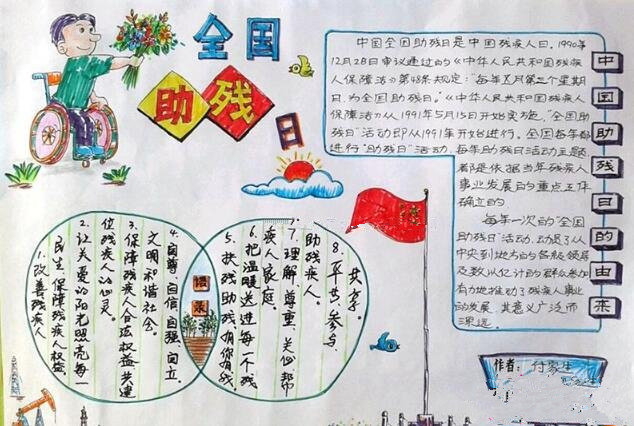 全国
助残
日
中国全国助残日是中国残疾人日.1990年
12月28日审议通过的《中华人民共和国残疾
人保障法》第48条规定:"每年五月第三个星期
日,为全国助残日."《中华人民共和国残疾人
保障法》从1991年5月15日开始实施,"全国助
残日"活动即从1991年开始进行。全国每年都
进行"助残日"活动,
每年助残日活动主题
都是依据当年残疾人
事业发展的重点工作
确立的
每年一次的"全国
助残日"活动,动员了从
中央到地方的各级领导
及数以亿计的群众参加
有力地推动了残疾人事业
的发展,其意义广泛而
深远.
中国助残日的由来
1.改善残疾人
民生 保障残疾人权益.
2.让关爱的阳光照亮每一
位残疾人的心灵。
3.保障残疾人合法权益共建
文明和谐社会。
4.自尊、自信、自强、自立.
语录
5.扶残助残,有你有我.
6.把温暖送进每一个残
疾人家庭。
7.理解、尊重、关心帮
助残疾人。
8.平共参与
共享。
作者: